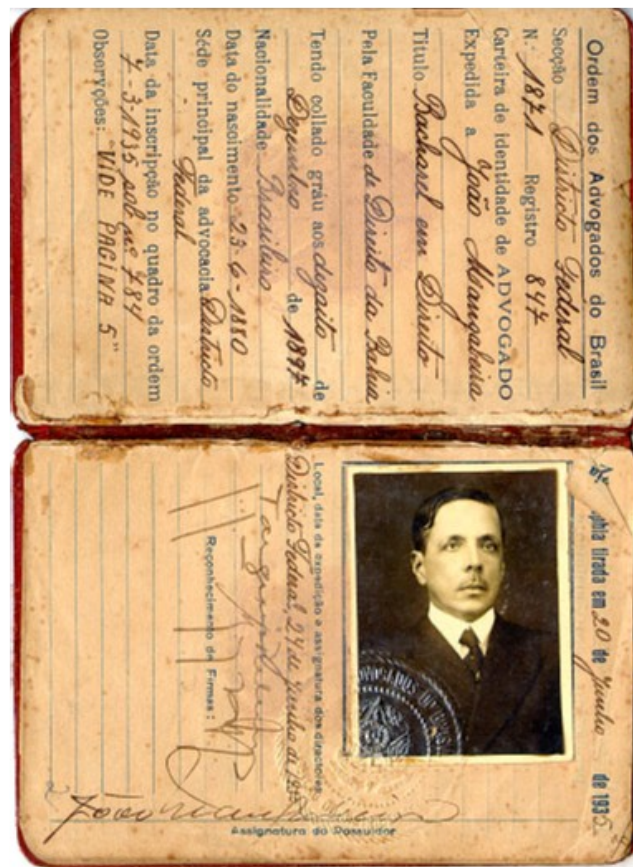 Ordem dos Advogados do Brasil
Secção Districto Federal
N. 1871 Registro 847
Carteira de identidade de ADVOGADO
Expedida a João Mangabeira
Titulo Bacharel em Direito
Pela Faculdade de Direito da Bahia
Tendo collado gráu aos dezoito de
Dezembro de 1897
Nacionalidade Brasileira
Data do nascimento 23-6-1880
Séde principal da advocacia Districto
Federal
Data da inscripção no quadro da ordem
7-3-1935 sob nº 784
Observções: VIDE PAGINA 5"
phia tirada em 20 de Junho de 1935
Local, data da expedição e assignatura dos directores
Districto Federal, 24 de Junho de
Reconhecimento de Firmas:
João Mangabeira
Assignatura do Possuidor